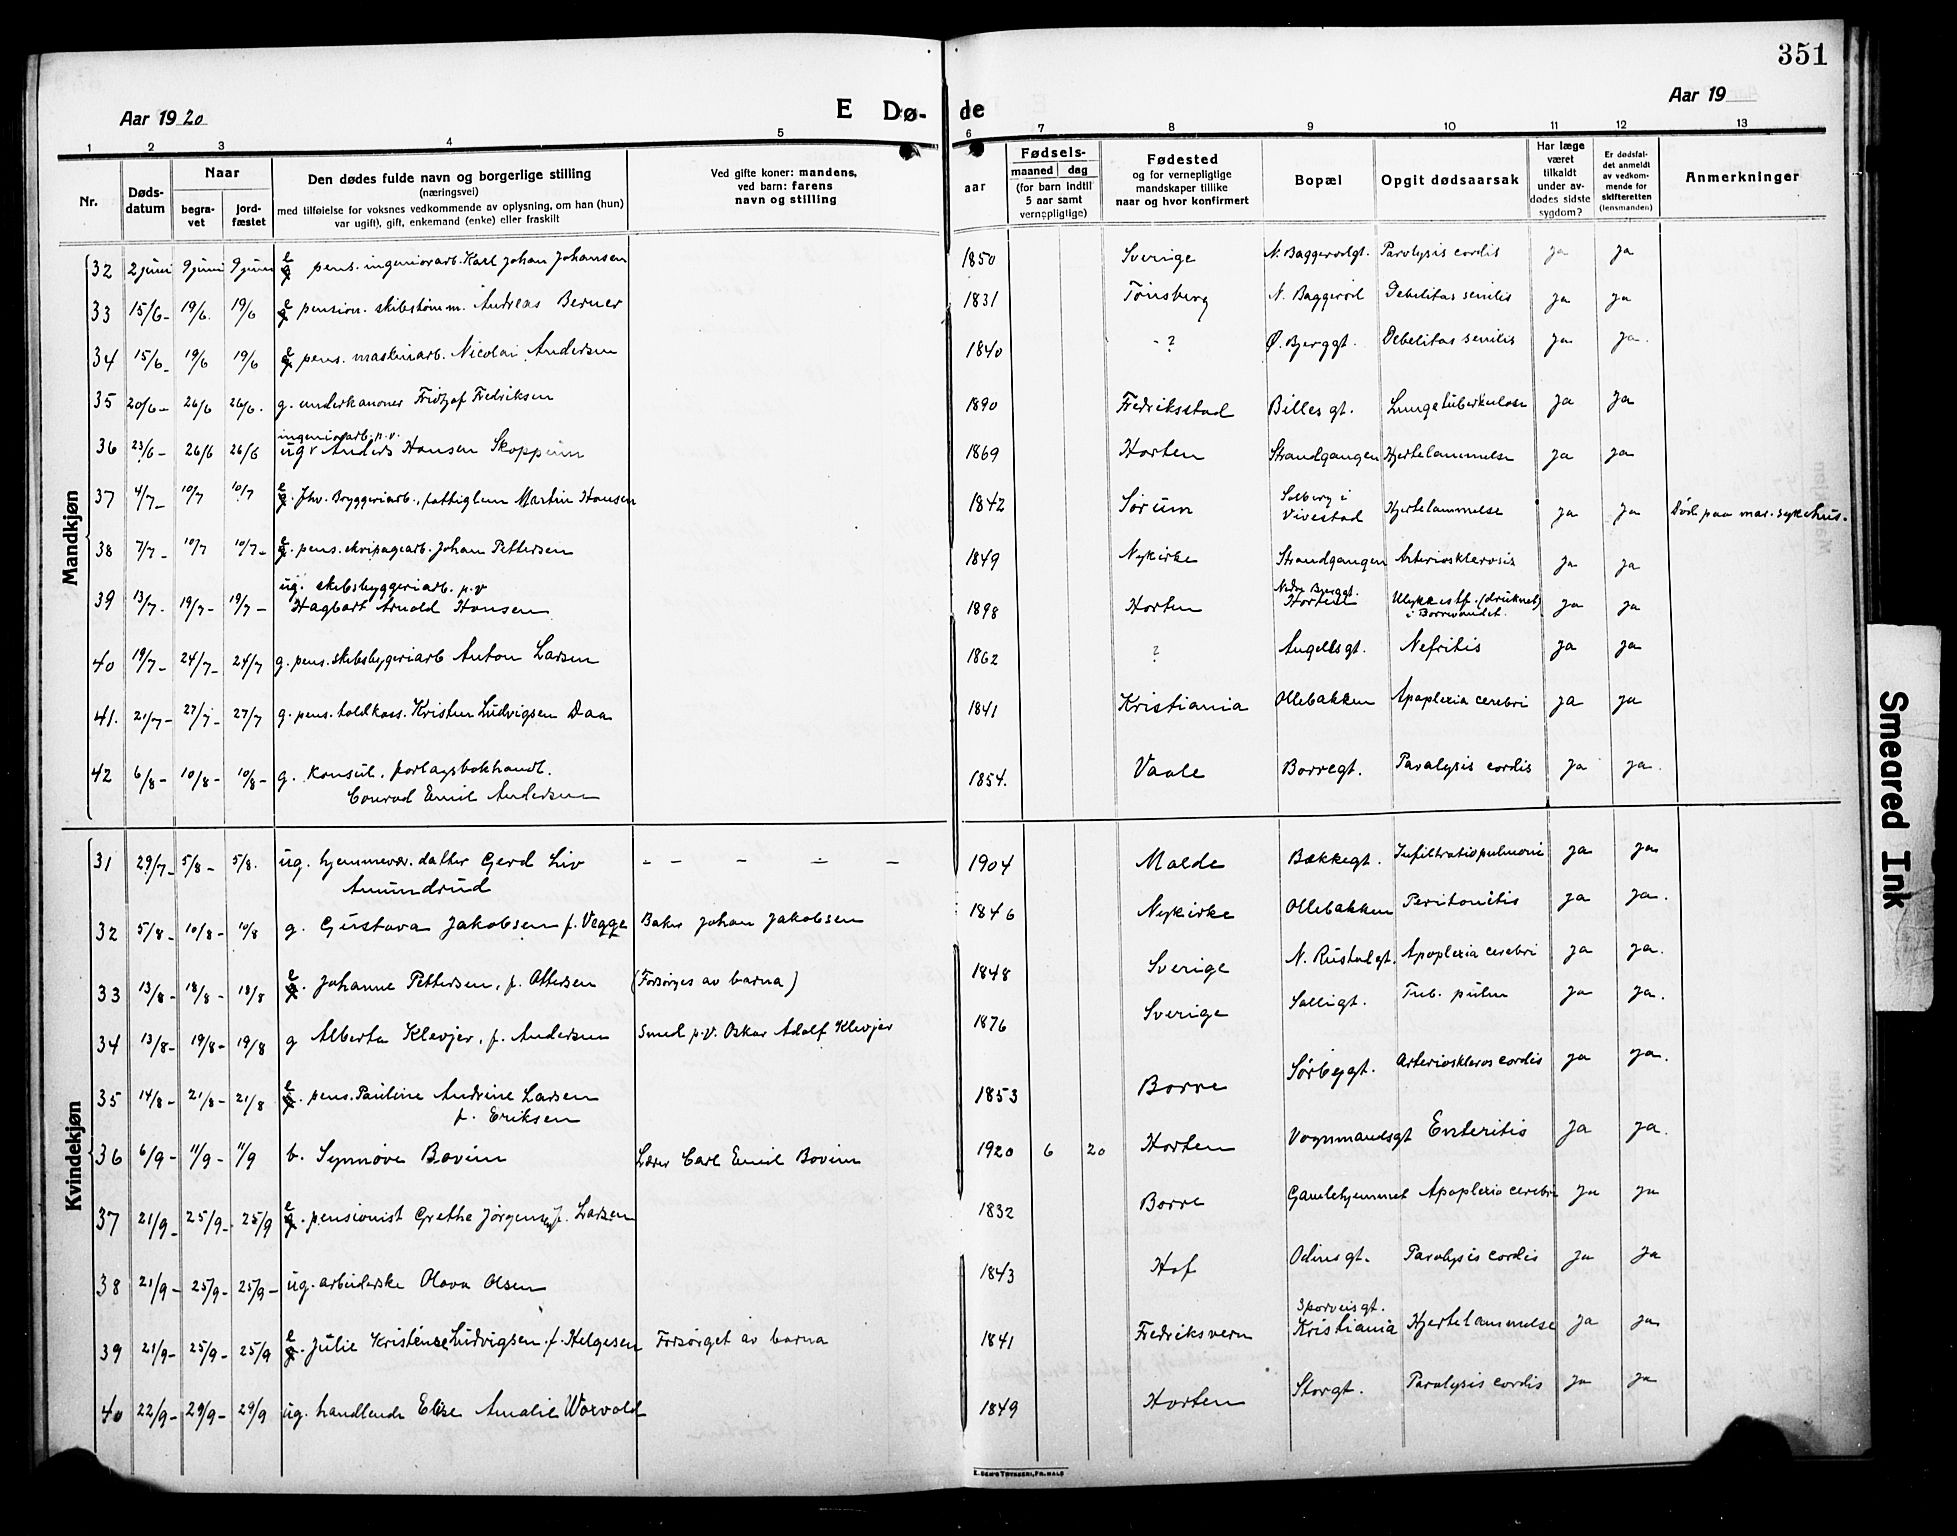 351
Aar 1920
E Dø-
de
Aar 19
1 2 3 4 5 6 7 8 9 10 11 12 13
Nr.
Døds-
datum
Naar
begra-
vet
jord-
fæstet
Den dødes fulde navn og borgerlige stilling
(næringsvei)
med tilføielse for voksnes vedkommende av oplysning, om han (hun)
var ugift), gift, enkemand (enke) eller fraskilt
Ved gifte koner: mandens,
ved barn: farens
navn og stilling
Fødsels-
aar
maaned dag
(for barn indtil
5 aar samt
vernepligtige)
Fødested
og for vernepligtige
mandskaper tillike
naar og hvor konfirmert
Bopæl
Opgit dødsaarsak
Har læge
været
tilkaldt
under av-
dødes sidste
sygdom?
Er dødsfal-
det anmeldt
av vedkom-
mende for
skifteretten
(lensmanden)
Anmerkninger
Mandkjøn
32 2 juni 9 juni 9 juni e pens. ingeniørarb. Karl Johan Johansen 1850 Sverige N. Baggerødgt. Paralysis cordis ja ja
33 15/6- 19/6. 19/6 e pension. skibstømm. Andreas Berner 1831 Tønsberg N. Baggerød Debelitas senilis ja ja
34 15/6- 19/6 19/6 e pens. maskinarb. Nicolai Andersen 1840 - ? Ø. Bjerggt. Debelitas senilis ja ja.
35 20/6- 26/6 26/6. g. underkanoner Fridtjof Fredriksen 1890 Fredriksstad Billes gt. Lungetuberkulose ja ja
ingeniørarb. p.v.
36 23/6- 26/6 26/6 ug. Anders Hansen Skoppum 1869 Horten Strandgangen Hjertelammelse ja ja
37 4/7- 10/7 10/7 e. fhv. Bryggeriarb., fattiglem Martin Hansen 1842 Sørum Solberg i
Vivestad Hjertelammelse ja ja Død paa mar. sykehus.
38 7/7- 10/7 10/7- e. pens. ekvipagearb. Johan Pettersen 1849 Nykirke Strandgangen Arteriosklerosis ja ja
39 13/7. 19/7- 19/7- ug. skibsbyggeriarb. p.v
Hagbart Arnold Hansen 1898 Horten Nedre Bjerggt.
Horten Ulykkestf. (druknet)
i Borrevandet. ja ja
40 19/7- 24/7- 24/7 g. pens. skibsbyggeriarb Anton Larsen 1862 ? Angellsgt. Nefritis ja ja
41. 21/7- 27/7- 27/7 g. pens. toldkass. Kristen Ludvigsen Daa 1841 Kristiania Ollebakken Apoplexia cerebri ja ja
42 6/8- 10/8- 10/8- g. konsul, forlagsbokhandl.
Conrad Emil Andersen 1854. Vaale Borregt. Paralysis cordis ja ja.
Kvindekjøn
31 29/7- 5/8- 5/8. ug. hjemmevær. datter Gerd Liv
Amundrud - - - - - 1904 Molde Bækkegt. Infiltratio pulmoni ja ja
32 5/8- 10/8- 10/8 g. Gustava Jakobsen f. Vegge Baker Johan Jakobsen 1846 Nykirke Ollebakken Peritonitis ja ja.
33 13/8- 18/8- 18/8 e. Johanne Pettersen, f. Ottersen (Forsørges av barna) 1848 Sverige N. Rustadgt. Apoplexia cerebri ja ja.
34 13/8- 19/8- 19/8 g Alberta Klevjer, f. Andersen Smed p.v. Oskar Adolf Klevjer 1876 Sverige Solligt. Tub. pulm ja ja.
35 14/8- 21/8- 21/8 e. pens. Pauline Andrine Larsen
f. Eriksen 1853 Borre Sørbygt. Arterioskleros cordis ja ja.
36 6/9- 11/9- 11/9 b. Synnøve Bovim Lærer Carl Emil Bovim 1920 6 20 Horten Vognmandsgt Enteritis ja ja.
37 21/9- 25/9- 25/9 e. pensionist Grethe Jørgensen f. Larsen 1832 Borre Gamlehjemmet Apoplexia cerebri ja ja
38 21/9- 25/9- 25/9- ug. arbeiderske Olava Olsen 1843 Hof Odins gt. Paralysis cordis ja ja
39 21/9- 25/9- 25/9 e. Julie Kristense Ludvigsen f. Helgesen Forsørget av barna 1841 Fredriksvern Sporveisgt.
Kristiania Hjertelammelse ja ja
40 22/9- 29/9- 29/9 ug. handlende Elise Amalie Worvold 1849 Horten Storgt. Paralysis cordis ja ja
Smeared Ink